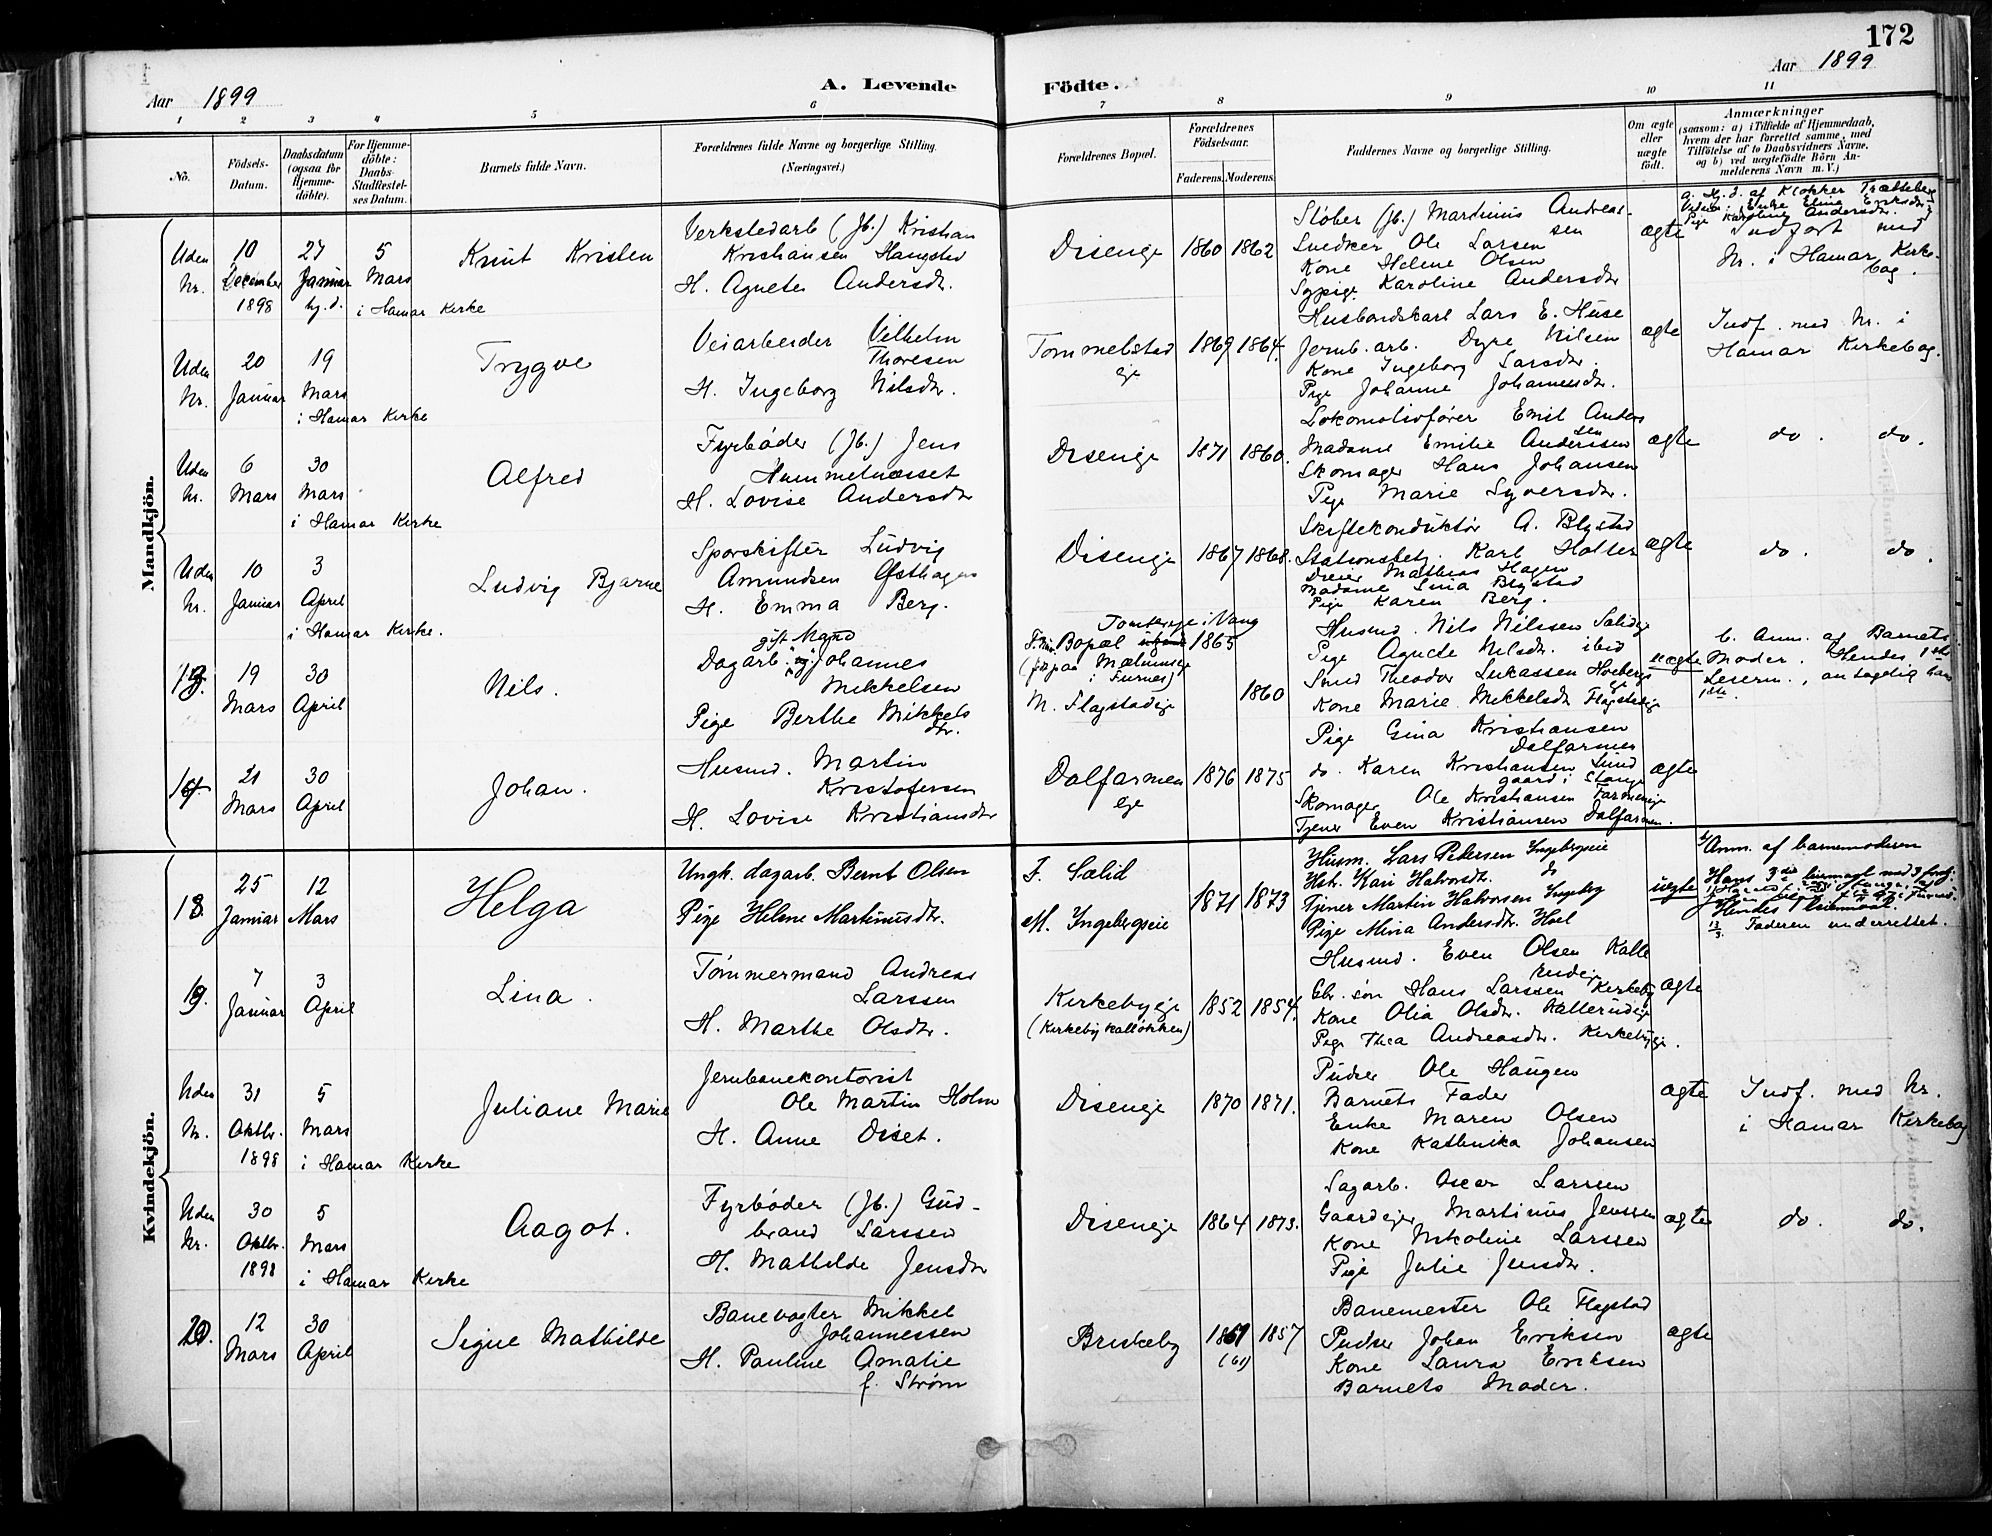 172
Aar 1899
A. Levende
Födte.
Aar 1899
1 2 3 4 5 6 7 8 9 10 11
No.
Födsels-Datum.
Daabsdatum (ogsaa for Hjemmedöbte).
For Hjemmedöbte: Daabs-Stadfæstelses Datum.
Barnets fulde Navn.
Forældrenes fulde Navne og borgerlige Stilling.
(Næringsvei.)
Forældrenes Bopæl.
Forældrenes Födselsaar.
Faderens. Moderens.
Faddernes Navne og borgerlige Stilling.
Om ægte eller uægte födt.
Anmærkninger
(saasom: a) i Tilfælde af Hjemmedaab,
hvem der har forrettet samme, med
Tilföielse af to Daabsvidners Navne,
og b) ved uægtefödte Börn Anmelderens Navn m. V.)
Mandkjön.
Uden Nr.
10 December 1898
27 Januar hj. d.
5 Mars
i Hamar Kirke
Knut Kristen
Verkstedarb (Jb.) Kristian
Kristiansen Haugstad
H. Agnete Andersdr.
Disenge
1860 1862
Støber (Jb.) Martinius Andreassen
Snedker Ole Larsen
Kone Helene Olsen
Sypige Karoline Andersdtr
ægte
a. Hj. d. af Klokker Trætteberg
Vidn: Enke Elina Eriksdr.
Pige Karoline Andersdr.
Indført med
Nr. i Hamar Kirkebog.
Uden Nr.
20 Januar
19 Mars
i Hamar Kirke
Trygve
Veiarbeider Vilhelm
Thoresen
H. Ingeborg Nilsdr.
Tommelstad
eje
1869 1864.
Husbondskarl Lars E. Huse
Jernb. arb. Dyre Nilsen
Kone Ingeborg Larsdr.
Pige Johanne Johannesdr.
ægte
Indf. med Nr. i
Hamar Kirkebog.
Uden Nr.
6 Mars
30 Mars
i Hamar Kirke
Alfred
Fyrbøder (Jb.) Jens
Hammelnæsset
H. Lovise Andersdtr
Disenge
1871 1860.
Lokomotivfører Emil Andersen
Madame Emilie Andersen
Skomager Hans Johansen
Pige Marie Syversdtr.
ægte
do. do.
Uden Nr.
10 Januar
3 April
i Hamar Kirke.
Ludvig Bjarne
Sporskifter Ludvig
Amundsen Østhagen
H. Emma Berg.
Disenge
1867 1868.
Skiftekonduktør A. Blystad
Stationsbetj. Karl Holter
Dreier Mathias Hagen
Madame Lina Blystad
Pige Karen Berg.
ægte
do. do.
13.
19 Mars
30 April
Nils.
gift Mand
Dagarb. Johannes
Mikkelsen
Pige Berthe Mikkelsdtr.
Tomtereje i Vang
Bopæl 1865
i Furnes)
M. Flagstadeje
1860
Husmd. Nils Nilssen Solideje
Pige Agnete Nilsdr. ibid
Smed Theodor Lukassen Hobergseje
Kone Marie Mikkelsdr Flagstadeje
uægte
b. Anm. af Barnets
Moder. Hendes 1ste
Leierm., antagelig hans
1ste.
14.
21 Mars
30 April
Johan.
Husmd. Martin
Kristofersen
H. Lovise Kristiansdtr
Dalfarmen
eje
1876 1875
Pige Gina Kristiansen
Dalfarmen
do. Karen Kristiansen Lund
gaard i Stange
Skomager Ole Kristiansen Farmeneje
Tjener Even Kristiansen Dalfarmen.
ægte
Kvindekjön.
18.
25 Januar
12 Mars
Helga
Ungk. dagarb. Bernt Olsen
Pige Helene Martinusdtr.
F. Sælid
M. Ingebergseie
1871 1873
Husm. Lars Pedersen Ingebergseie
Hst. Kari Halvorsdt. do
Tjener Martin Halvorsen Ingeberg
Pige Mina Andersdtr. Hoel
uægte
b/Anm. af barnemoderen
Hans 3die leiermaal med 3 forsk.
Hendes 1 leiermaal.
12/3. Faderen underrettet.
19.
7 Januar
3 April
Lina.
Tømmermand Andreas
Larssen
H. Marthe Olsdtr.
Kirkebyeje
(Kirkebykalløkken)
1852 1854.
Husmd. Even Olsen Kallerudeje
Gbr. søn Hans Larssen Kirkeby
Kone Olia Olsdtr. Kallerudeje
Pige Thea Andreasdtr. Kirkebyeje.
ægte
Uden Nr.
31 Oktbr. 1898
5 Mars
i Hamar Kirke
Juliane Marie
Jernbanekontorist
Ole Martin Holm
H. Anne Diset.
Disenge
1870 1871.
Pudser Ole Haugen
Barnets Fader
Enke Maren Olsen
Kone Kathinka Johansen
ægte
Indf. med Nr.
i Hamar Kirkebog
Uden Nr.
30 Oktbr. 1898
5 Mars
i Hamar Kirke
Aagot.
Fyrbøder (Jb.) Gudbrand
Larssen
H. Mathilde Jensdtr
Disenge
1864 1873.
Sagarb. Oscar Larsen
Gaardejer Martinus Jenssen
Kone Nikoline Larssen
Pige Julie Jensdtr.
ægte
do. do.
20.
12 Mars
30 April
Signe Mathilde
Banevogter Mikkel
Johannessen
H. Pauline Amalie
f. Strøm
Briskeby
1861
(61)
1857
Banemester Ole Flegstad
Pudser Johan Eriksen
Kone Laura Eriksen
Barnets Moder.
ægte